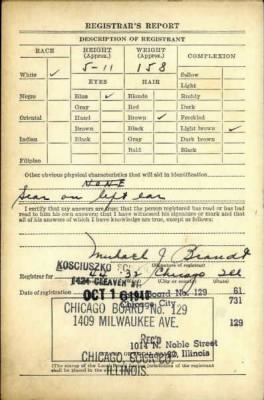 REGISTRAR'S REPORT
DESCRIPTION OF REGISTRANT
RACE HEIGHT (Approx.) WEIGHT (Approx.) COMPLEXION
5-11 158
White ✓ EYES HAIR Sallow
Light
Negro Blue ✓ Blonde Ruddy
Gray Red Dark
Oriental Hazel Brown ✓ Freckled
Brown Black Light brown ✓
Indian Black Gray Dark brown
Bald Black
Filipino
Other obvious physical characteristics that will aid in identification
NONE
Scar on left ear
I certify that my answers are true; that the person registered has read or has had
read to him his own answers; that I have witnessed his signature or mark and that
all of his answers of which I have knowledge are true, except as follows:
Michael J. Brandt
KOSCIUSZKO
Registrar for 44 32 Chicago Ill
1424 CLEAVER ST.
Date of registration OCT 16 1940
Board No. 129 61
Chicago City 731
CHICAGO BOARD No. 129
1409 MILWAUKEE AVE. 129
REC'D
1014 N. Noble Street
CHICAGO, COOK CO. Illinois
ILLINOIS.